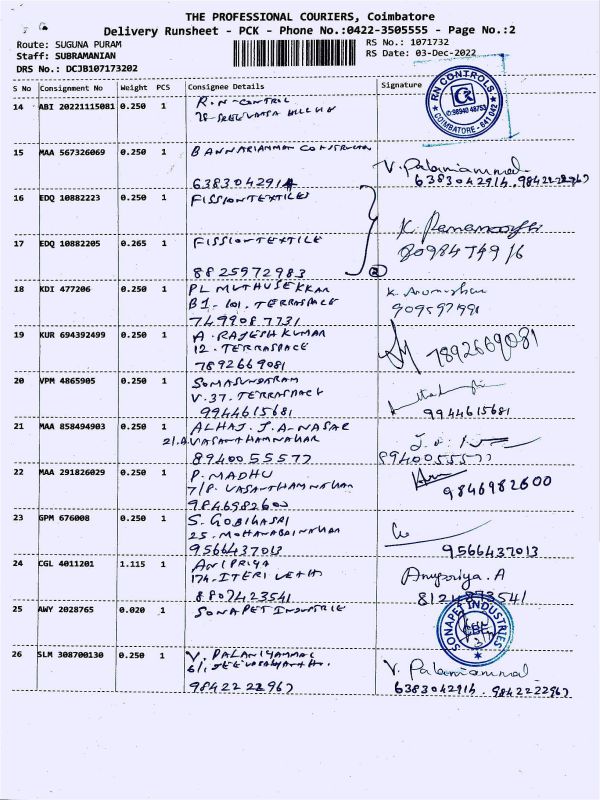 THE PROFESSIONAL COURIERS, Coimbatore
Delivery Runsheet - PCK - Phone No.:0422-3505555 - Page No.:2
Route: SUGUNA PURAM
RS No.: 1071732
Staff: SUBRAMANIAN
RS Date: 03-Dec-2022
DRS No.: DCJB107173202
S No Consignment No Weight PCS Consignee Details Signature
14 ABI 20221115081 0.250 1 R.N-CONTROL
RN CONTROLS
COIMBATORE - 641 042
15 MAA 567326069 0.250 1 BANNARIAMMAN
6383042914
V. Palaniammal
6383042914, 9842222967
16 EDQ 10882223 0.250 1 FISSIONTEXTILES
17 EDQ 10882205 0.265 1 FISSIONTEXTILE
8825972983
K. Ramamoorthi
18 KDI 477206 0.250 1 PL MUTHUSEKKAR
B1-101. TERRASPACE
7499087731
19 KUR 694392499 0.250 1 A. RAJESH KUMAR
12. TERRASPACE
7892669081
7892669081
20 VPM 4865905 0.250 1 SOMASUNDARAM
V.37. TERRASPACE
9944615681
9944615681
21 MAA 858494903 0.250 1 ALHAJ. J.A-NASAR
8940055577
8940055577
22 MAA 291826029 0.250 1 P. MADHU
9846982600
9846982600
23 GPM 676008 0.250 1 S. GOBIKASRI
9566437013
9566437013
24 CGL 4011201 1.115 1 ANIPRIYA
8807423541
Anupriya. A
25 AWY 2028765 0.020 1 SONAPET INDUSTRIE
SONAPET INDUSTRIES
CBE
26 SLM 308700130 0.250 1 V. PALANIYAMMAL
9842222967
V. Palaniammal
6383042914. 9842222967